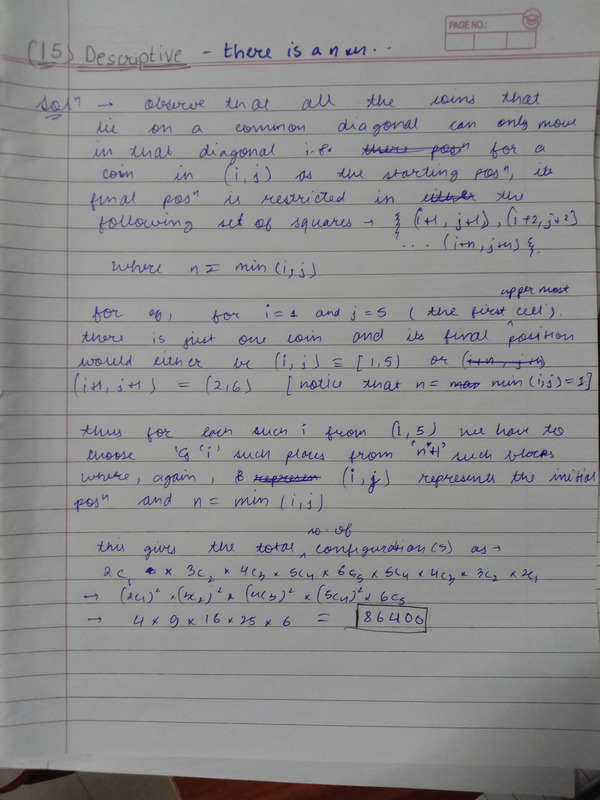 PAGE NO.:
(15) Descriptive - there is a n xn..
Solⁿ → observe that all the coins that
lie on a common diagonal can only move
in that diagonal i.e. there posⁿ for a
coin in (i,j) as the starting posⁿ, its
final posⁿ is restricted in either the
following set of squares → { (i+1, j+1), (i+2, j+2)
... (i+n, j+n) }.
where n = min (i,j)
upper most
for eg, for i=1 and j=5 ( the first cell).
there is just one coin and its final position
would either be (i,j) ≡ [1,5) or (i+n, j+n)
(i+1, j+1) = (2,6) [ notice that n= max min(i,j)=1]
thus for each such i from (1,5) we have to
choose 'i' such places from 'n+1' such blocks
where, again, represen (i,j) represents the initial
posⁿ and n = min (i,j)
no. of
this gives the total configuration(s) as →
2c₁ × 3c₂ × 4c₃ × 5c₄ × 6c₅ × 5c₄ × 4c₃ × 3c₂ × 2c₁
→ (2c₁)² × (3c₂)² × (4c₃)² × (5c₄)² × 6c₅
→ 4 × 9 × 16 × 25 × 6 = 86400